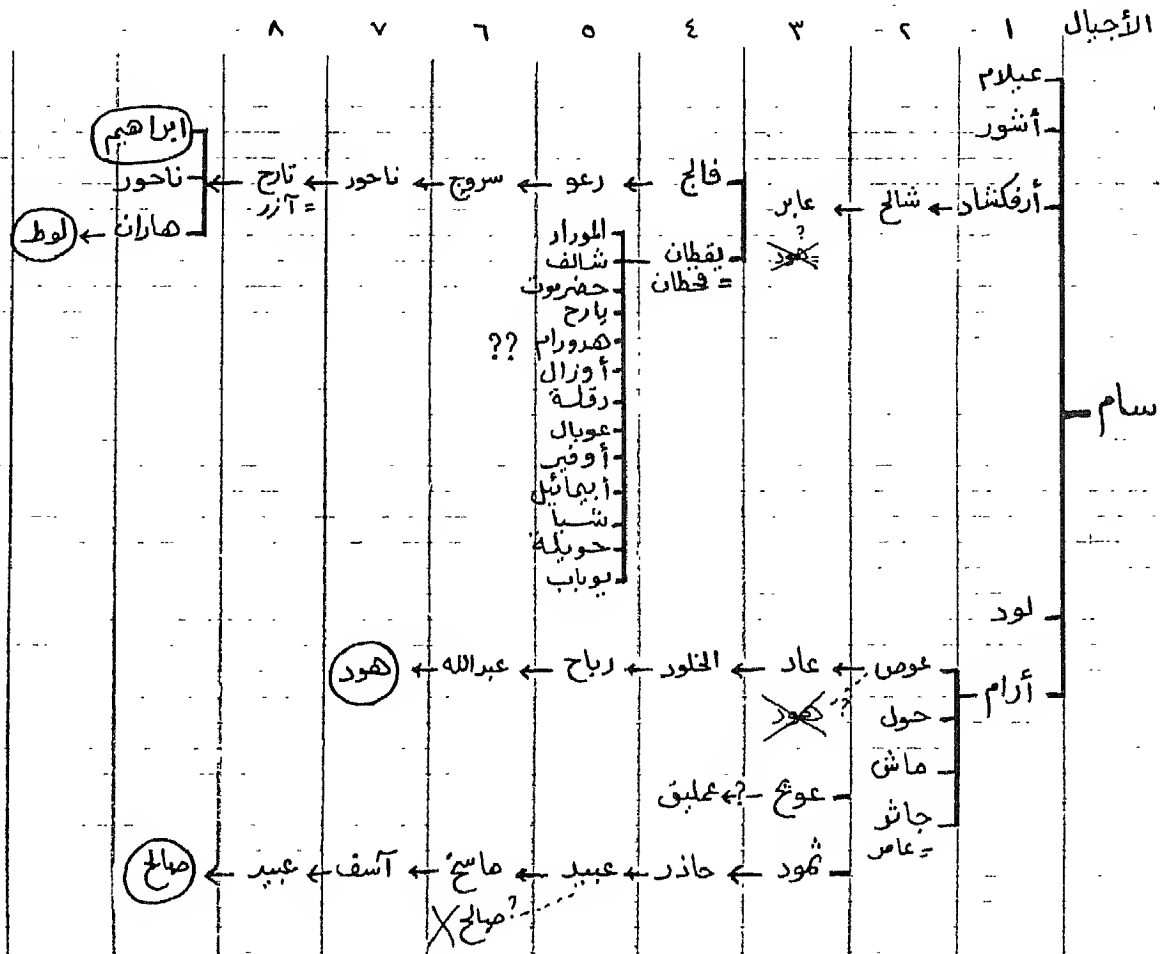 الأجيال ١ ٢ ٣ ٤ ٥ ٦ ٧ ٨
عيلام
أشور
ابراهيم
أرفكشاد ← شالخ ← عابر فالج ← رعو ← سروج ← ناحور ← تارح ← ناحور
= آزر
هاران ← لوط
؟
= هود
يقطان
= قحطان
الموراد
شالف
حضرموت
يارح
هدورام ??
أوزال
دقلة
عوبال
أوفير
أبيمائيل
شبا
حويلة
يوباب
سام
لود
أرام عوص ← عاد ← الخلود ← رباح ← عبدالله ← هود
؟ هود
حول
ماش
عوج -?← عمليق
جاثر
= عامر
ثمود ← حاذر ← عبيد ← ماسخ ← آسف ← عبير ← صالح
? صالح X